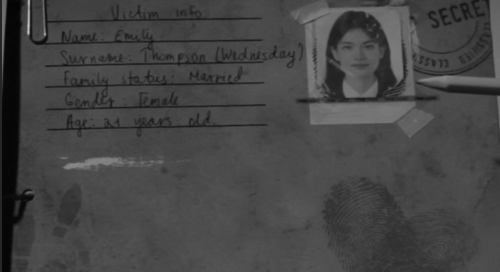 Victim info
Name: Emily
Surname: Thompson (Wednesday)
Family status: Married
Gender: Female
Age: 21 years old
SECRE
CLASSIFIED